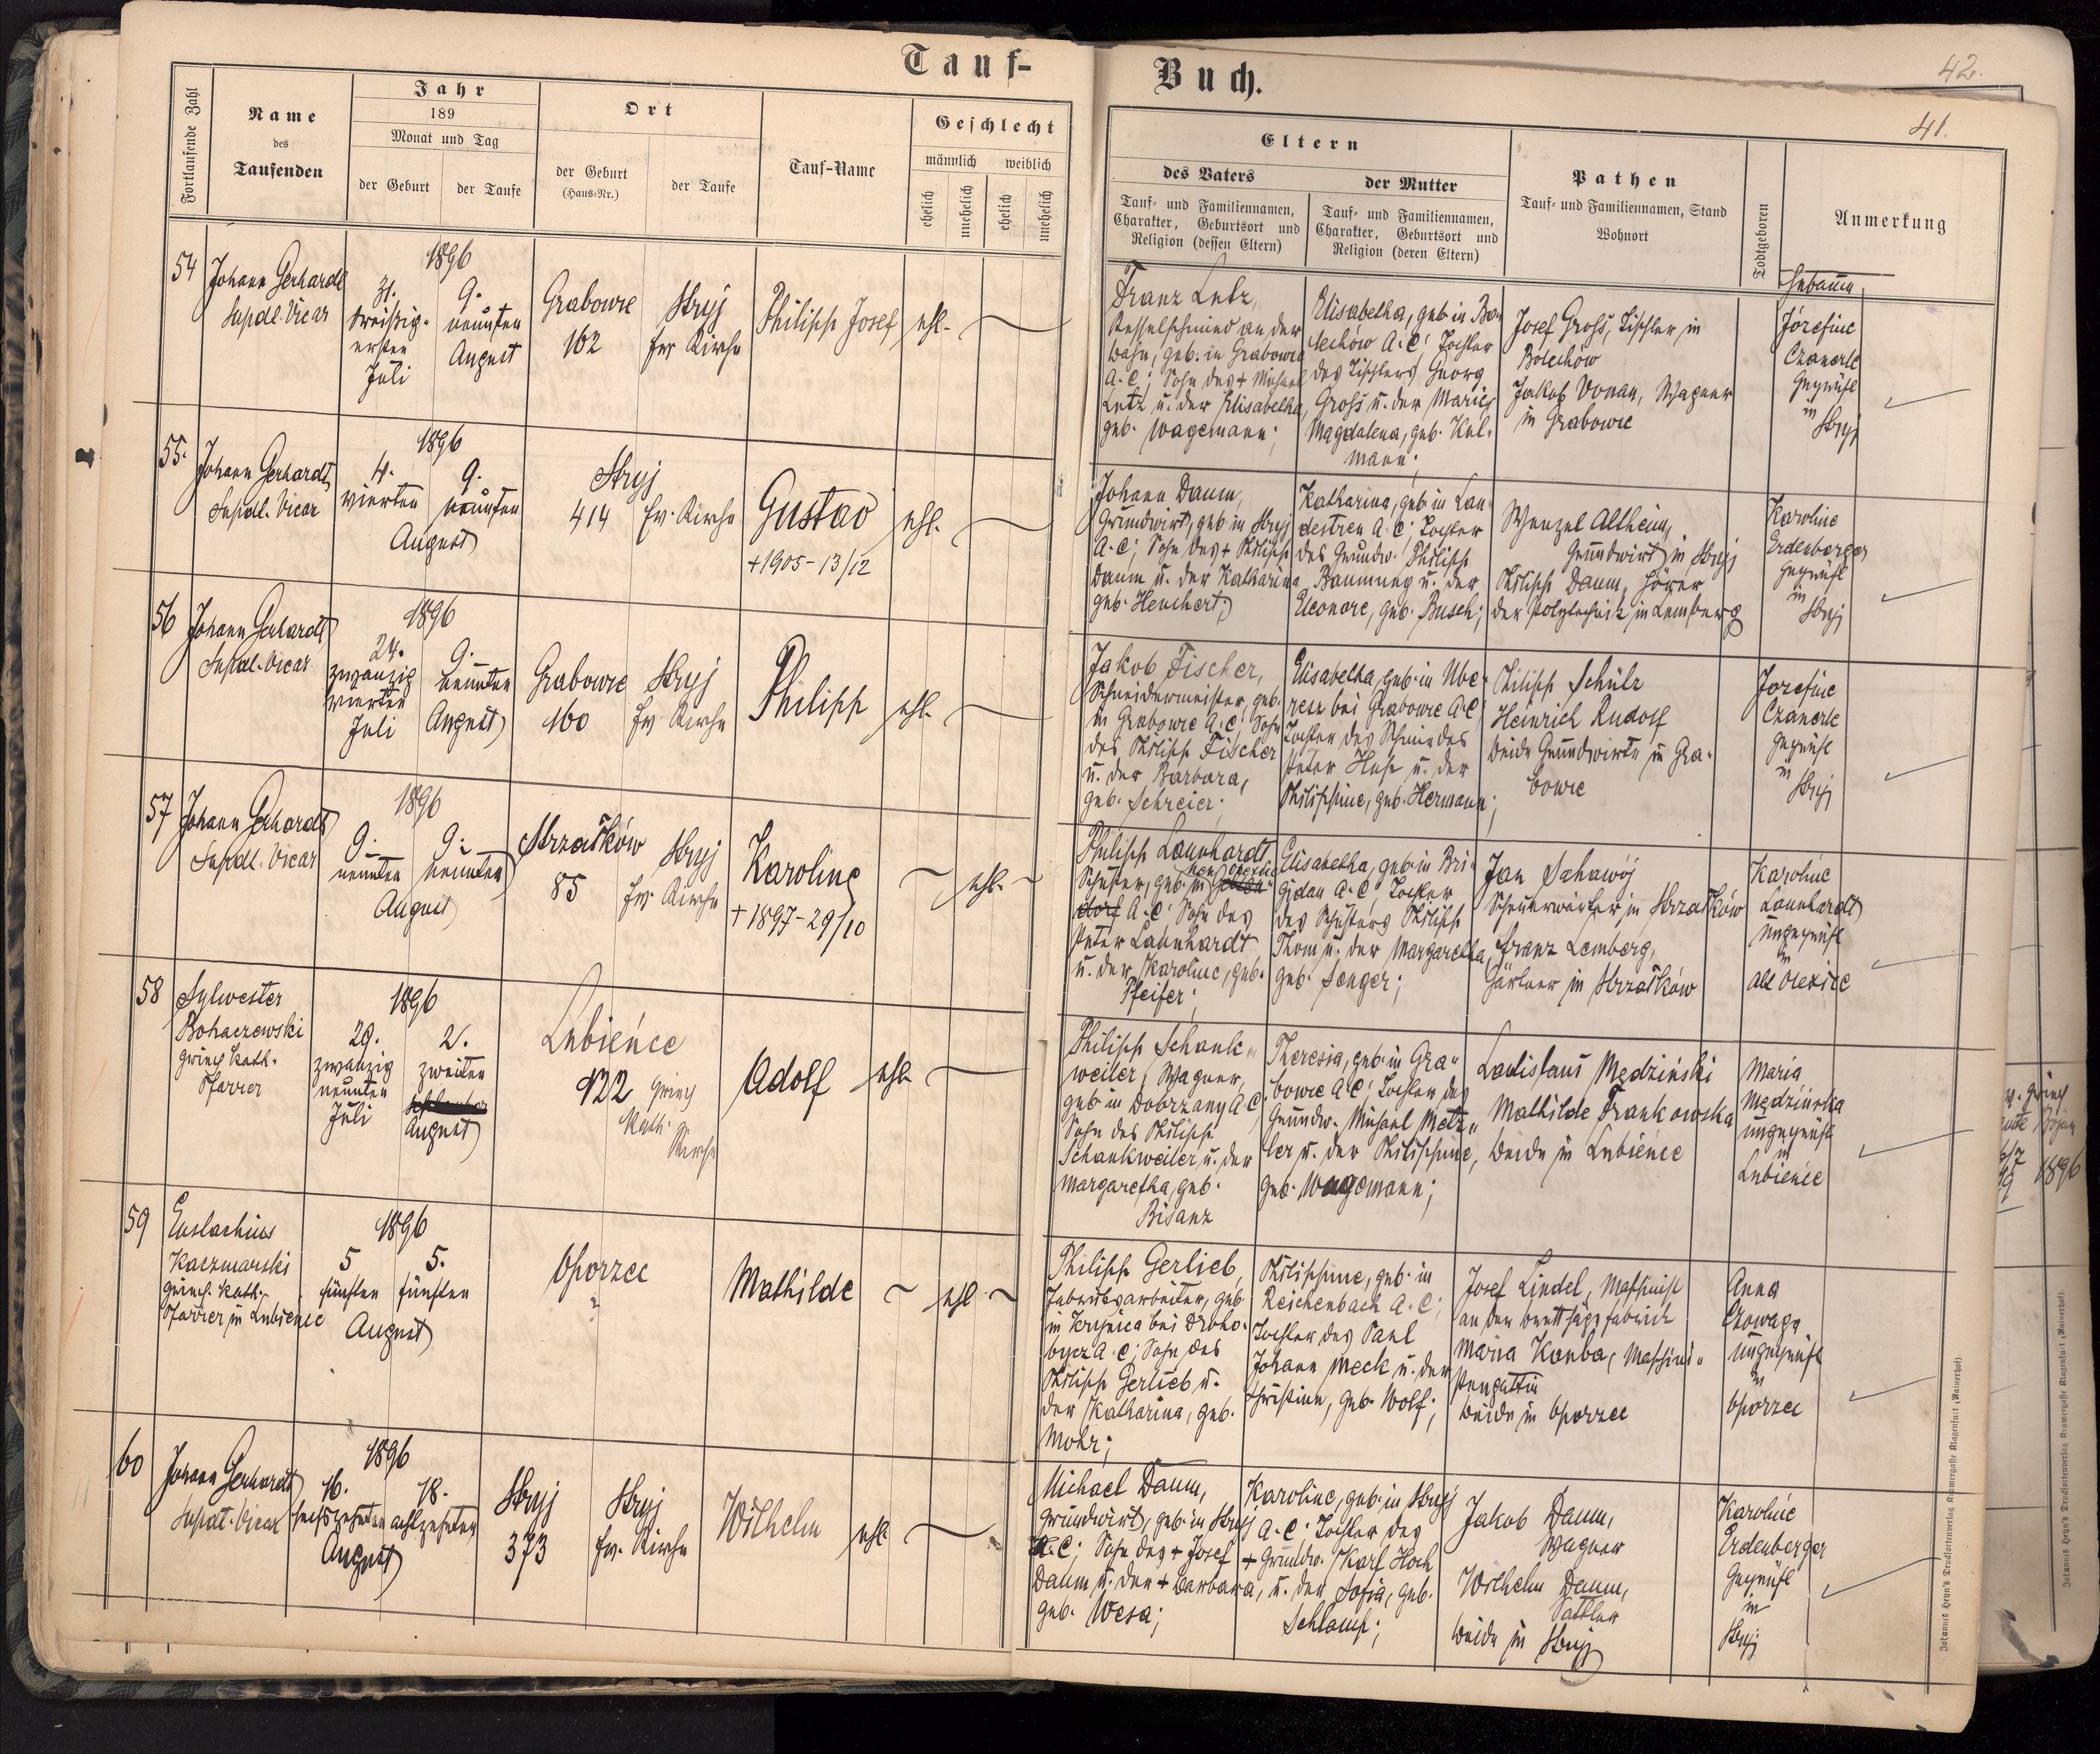 Tauf-
Buch.
42.
41.
Fortlaufende Zahl
Name
des
Taufenden
Jahr
189
Monat und Tag
der Geburt
der Taufe
Ort
der Geburt
(Haus-Nr.)
der Taufe
Tauf-Name
Geschlecht
männlich
weiblich
ehelich
unehelich
ehelich
unehelich
Eltern
des Vaters
Tauf- und Familiennamen,
Charakter, Geburtsort und
Religion (dessen Eltern)
der Mutter
Tauf- und Familiennamen,
Charakter, Geburtsort und
Religion (deren Eltern)
Pathen
Tauf- und Familiennamen, Stand
Wohnort
Todtgeboren
Anmerkung
Hebamm
54
Johann Gerhardt
Supdl. Vicar
1896
31.
dreißig-
ersten
Juli
9.
neunten
August
Grabowce
162
Stryj
ev. Kirche
Philipp Josef
ehl.
Franz Lutz,
Kesselschmied an der
Bahn, geb. in Grabowce
A.C; Sohn des + Michael
Lutz u. der Elisabetha,
geb. Wagemann;
Elisabetha, geb. in Bo-
lechów A.C; Tochter
des Tischlers Georg
Groß u. der Marie
Magdalena, geb. Kul-
mann;
Josef Groß, Tischler in
Bolechów
Jakob Vonau, Wagner
in Grabowce
Józefine
Czanerle
Geprüft
in
Stryj
55.
Johann Gerhardt
Supdl. Vicar
1896
4.
vierten
9.
neunten
August
Stryj
414
ev. Kirche
Gustav
+ 1905 - 13/12
ehl.
Johann Daum,
Grundwirt, geb. in Stryj
A.C; Sohn des + Philipp
Daum u. der Katharina
geb. Henchert;
Katharina, geb. in Lan-
destreu A.C; Tochter
des Grundw. Philipp
Baumung u. der
Eleonore, geb. Busch;
Wenzel Altheim,
Grundwirt in Stryj
Philipp Daum, Hörer
der Polytechnik in Lemberg
Karoline
Erdenberger
Geprüft
in
Stryj
56
Johann Gerhardt
Supdl. Vicar
1896
24.
zwanzig
vierten
Juli
9.
neunten
August
Grabowce
160
Stryj
ev. Kirche
Philipp
ehl.
Jakob Fischer,
Schneidermeister, geb.
in Grabowce A.C; Sohn
des Philipp Fischer
u. der Barbara,
geb. Schreier;
Elisabetha, geb. in Ube-
resz bei Grabowce A.C;
Tochter des Schmiedes
Peter Huse u. der
Philippine, geb. Hermann;
Philipp Schülz
Heinrich Rudolf
beide Grundwirte in Gra-
bowce
Jozefine
Czanerle
Geprüft
in
Stryj
57
Johann Gerhardt
Supdl. Vicar
1896
9.
neunten
9.
neunten
August
Strzałków
85
Stryj
ev. Kirche
Karoline
+ 1897 - 29/10
ehl.
Philipp Launhardt
Schuster, geb. in
A.C; Sohn des
Peter Launhardt
u. der Karoline, geb.
Pfeifer;
Elisabetha, geb. in Bri-
gidau A.C; Tochter
des Schusters Philipp
Thom u. der Margaretha,
geb. Senger;
Jan Sahawój
in Strzałków
Franz Lemberg,
Gärtner in Strzałków
Karoline
Launhardt
Ungeprüft
in
Alt Olexice
58
Sylwester
Bohaczewski
griech. kath.
Pfarrer
1896
29.
zwanzig
neunten
Juli
2.
zweiten
August
Lubieńce
122
griech
kath.
Kirche
Adolf
ehl.
Philipp Schank-
weiler, Wagner,
geb. in Dobrzany A.C
Sohn des Philipp
Schankweiler u. der
Margaretha, geb.
Bisanz
Theresia, geb. in Gra-
bowce A.C; Tochter des
Grundw. Michael Metz-
ler u. der Philippine,
geb. Wagemann;
Ladislaus Mędziński
Mathilde Frankowska
beide in Lubieńce
Maria
Mędzińska
ungeprüft
in
Lubieńce
59
Eustachius
Kaczmarski
griech. kath.
Pfarrer in Lubieńce
1896
5
fünften
5.
fünften
August
Oporzec
?
Mathilde
ehl
Philipp Gerlieb,
Fabriksarbeiter, geb.
in Krynica bei Droho-
bycz A.C; Sohn des
Philipp Gerlieb u.
der Katharina, geb.
Mohr;
Philippine, geb. in
Reichenbach A.C;
Tochter des Paul
Johann Meck u. der
Christine, geb. Wolf;
Josef Lindel, Maschinist
an der Brettsägefabrick
Maria Konba, Maschini-
stengattin
beide in Oporzec
Anna
Czowaga
ungeprüft
in
Oporzec
60
Johann Gerhardt
Supdl. Vicar
1896
16.
sechszehnten
18.
achtzehnten
August
Stryj
373
Stryj
ev. Kirche
Wilhelm
ehl.
Michael Daum,
Grundwirt, geb. in Stryj
A.C; Sohn des + Josef
Daum u. der + Barbara,
geb. Wesa;
Karoline, geb. in Stryj
A.C; Tochter des
+ Grundw. Karl Hoch
u. der Sofia, geb.
Schlamp;
Jakob Daum,
Wagner
Wilhelm Daum,
Sattler
beide in Stryj
Karoline
Erdenberger
Geprüft
in
Stryj
1896
Johannes Heyn's Drucksortenverlag Kramergasse Klagenfurt (Rainerhof).
Johannes Heyn's Drucksortenverlag Kramergasse Klagenfurt (Rainerhof).